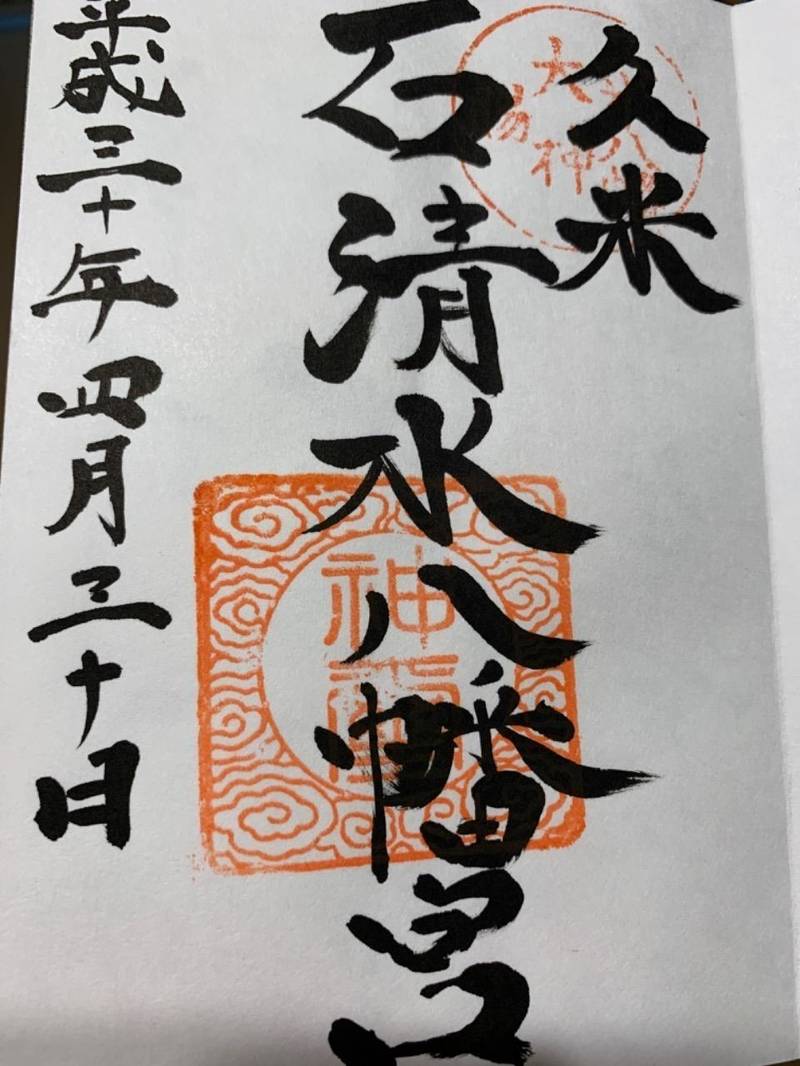 久米
石清水八幡宮
平成三十年四月三十日
神璽